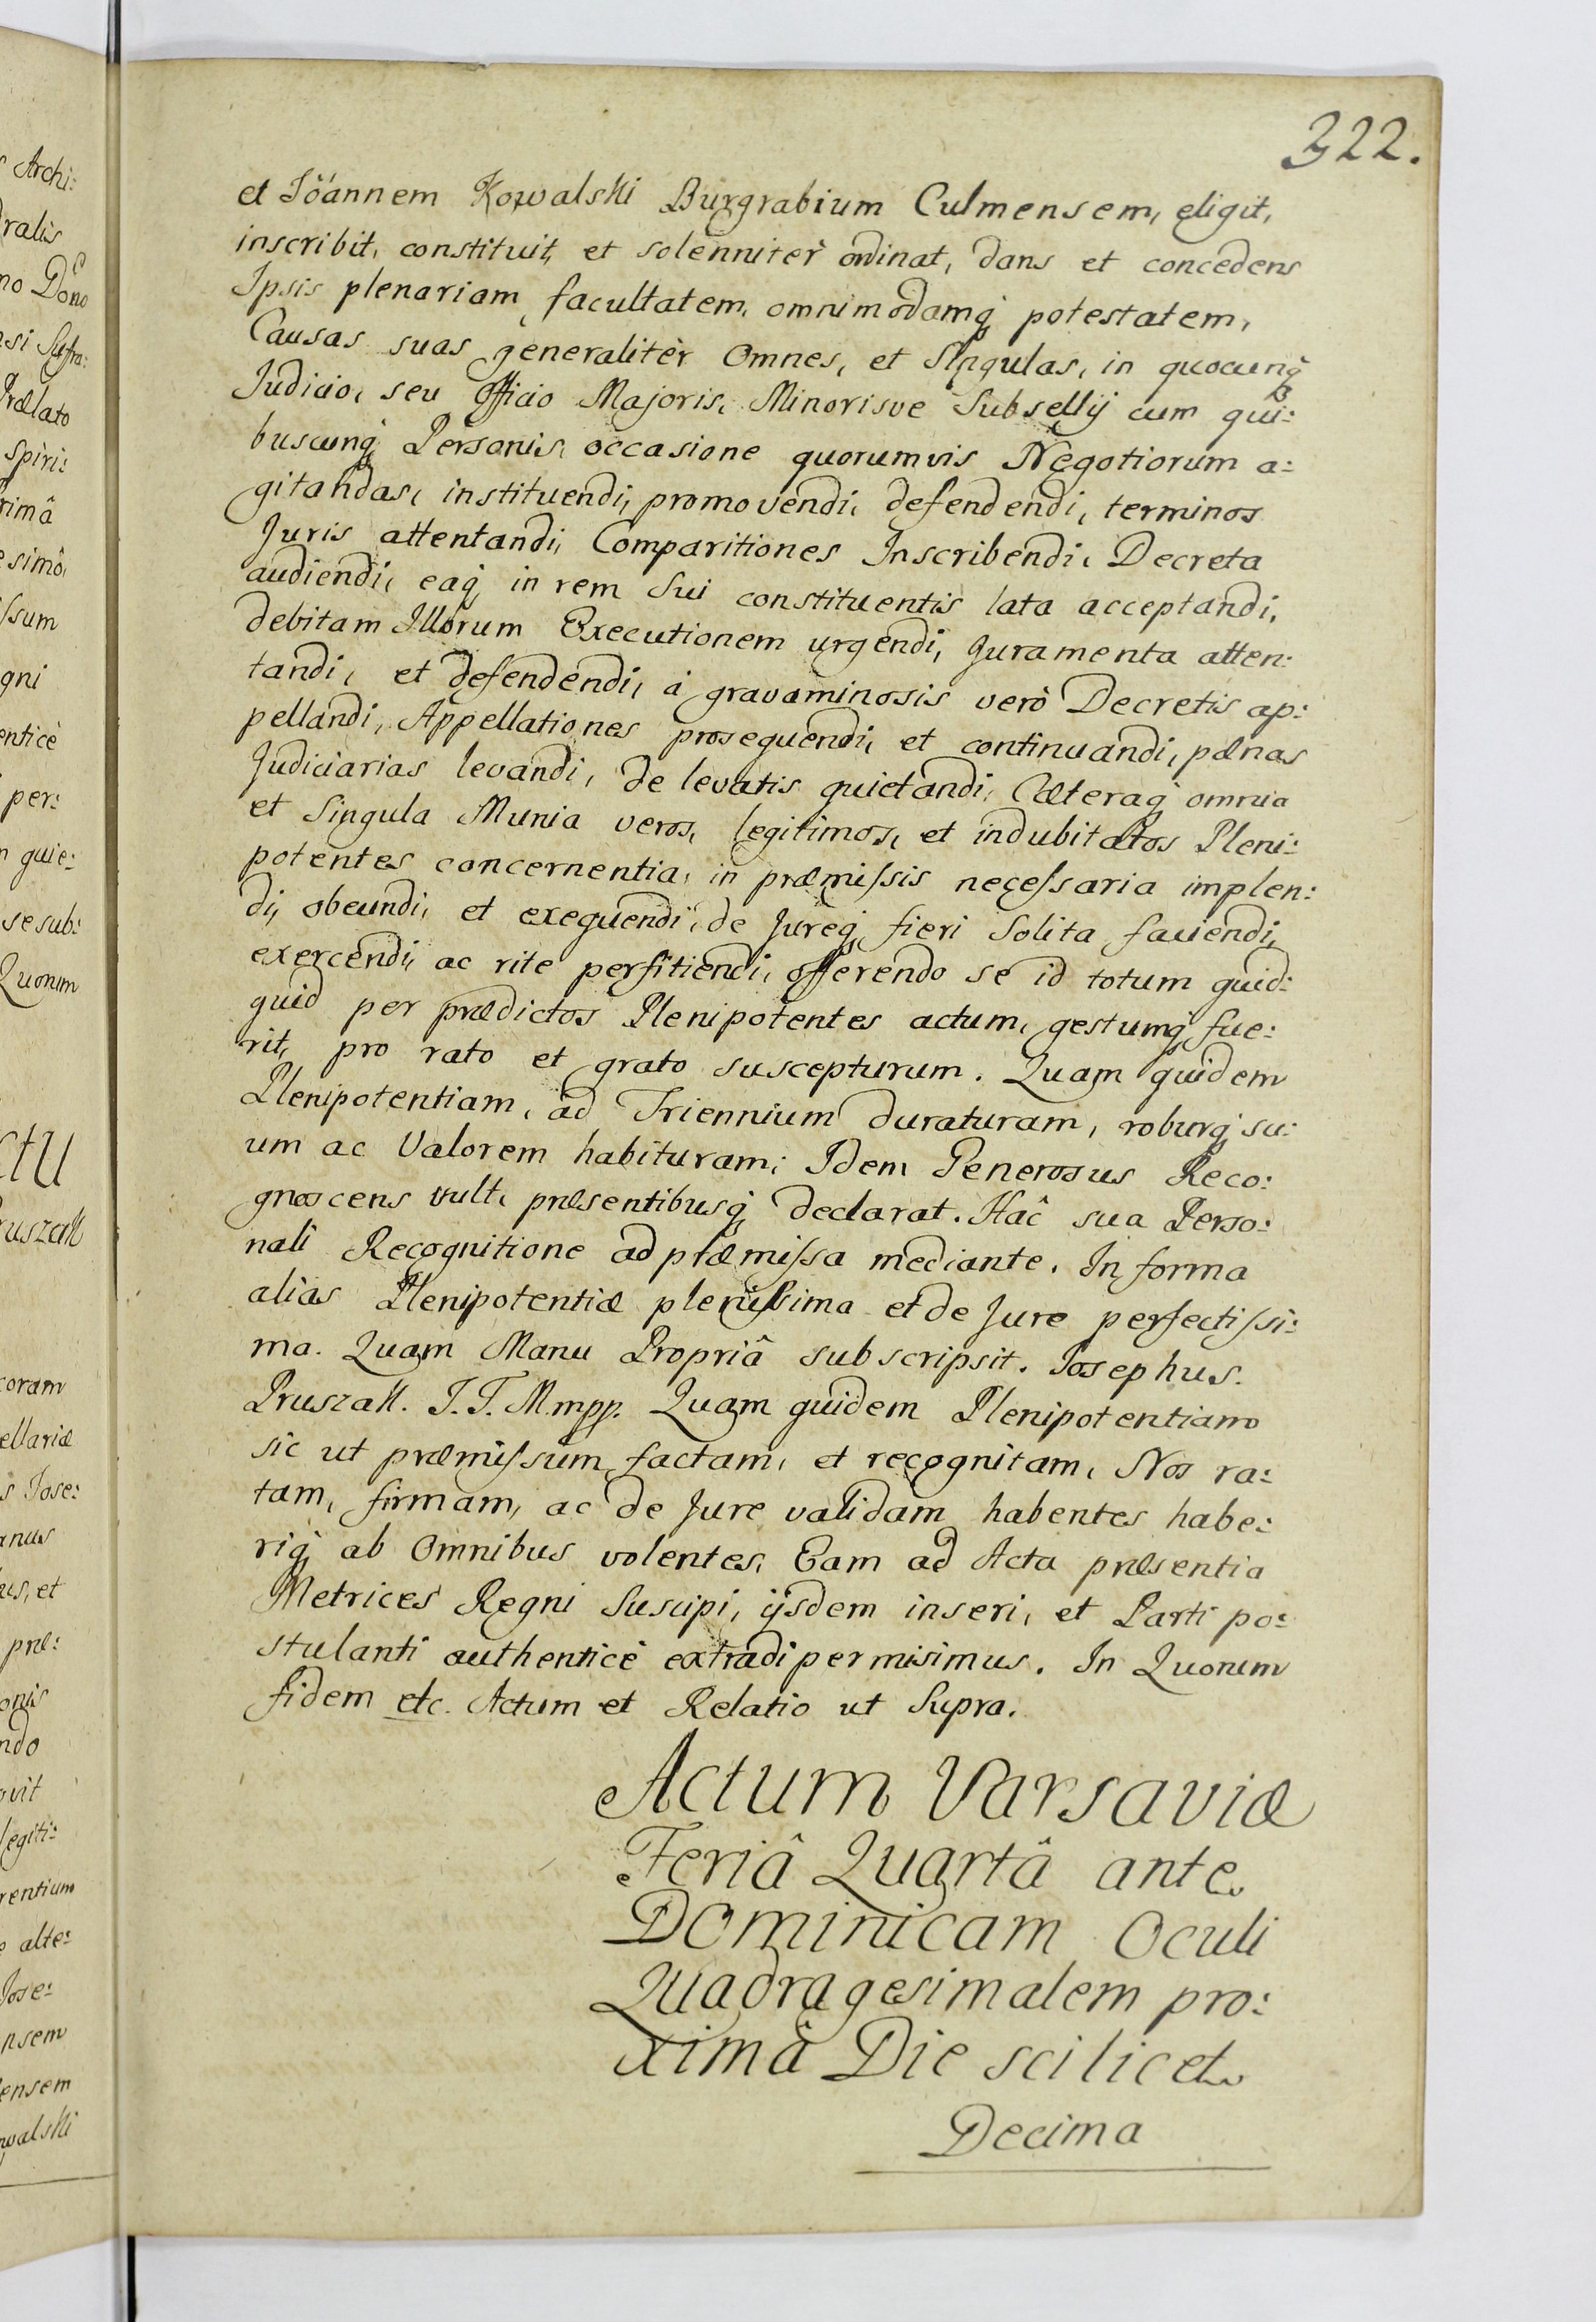 322.
et Jöannem Kowalski Burgrabium Culmensem, eligit,
inscribit, constituit, et solenniter ordinat, dans et concedens
Ipsis plenariam facultatem, omnimodamq; potestatem,
Causas suas generalitèr Omnes, et Singulas, in quocunq;
Judicio, seu Officio Majoris, Minorisve Subsellÿ cum qui:
buscunq; Personis, occasione quorumvis Negotiorum a:
gitandas, instituendi, promovendi, defendendi, terminos
Juris attentandi, Comparitiones Inscribendi, Decreta
audiendi, eaq; in rem Sui constituentis lata acceptandi,
debitam Illorum Executionem urgendi, Juramenta atten:
tandi, et defendendi, à gravaminosis verò Decretis ap:
pellandi, Appellationes prosequendi, et continuandi, pænas
Judiciarias levandi, de levatis quietandi, Cæteraq; omnia
et Singula Munia veros, legitimos, et indubitatos Pleni:
potentes concernentia, in præmissis necessaria implen:
di, obeundi, et exequendi, de Jureq; fieri Solita faciendi,
exercendi, ac rite perfitiendi, offerendo se id totum quid:
quid per prædictos Plenipotentes actum, gestumq; fue:
rit, pro rato et grato suscepturum. Quam quidem
Plenipotentiam, ad Triennium duraturam, roburq; su:
um ac Valorem habituram, Idem Generosus Reco:
gnoscens vult, præsentibusq; declarat. Hâc sua Perso:
nali Recognitione ad præmissa mediante. In forma
alias Plenipotentiæ plenissima et de Jure perfectissi:
ma. Quam Manu Propriâ subscripsit. Josephus.
Pruszak. T. T. M.mpp. Quam quidem Plenipotentiam
sic ut præmissum factam, et recognitam, Nos ra:
tam, firmam, ac de Jure validam habentes habe:
riq; ab Omnibus volentes, Eam ad Acta præsentia
Metrices Regni Suscipi, ijsdem inseri, et Parti po:
stulanti authenticè extradi permisimus. In Quorum
fidem etc. Actum et Relatio ut Supra.
Actum Varsaviæ
Feriâ Quartâ ante
Dominicam Oculi
Quadragesimalem pro:
ximâ Die scilicet
Decima